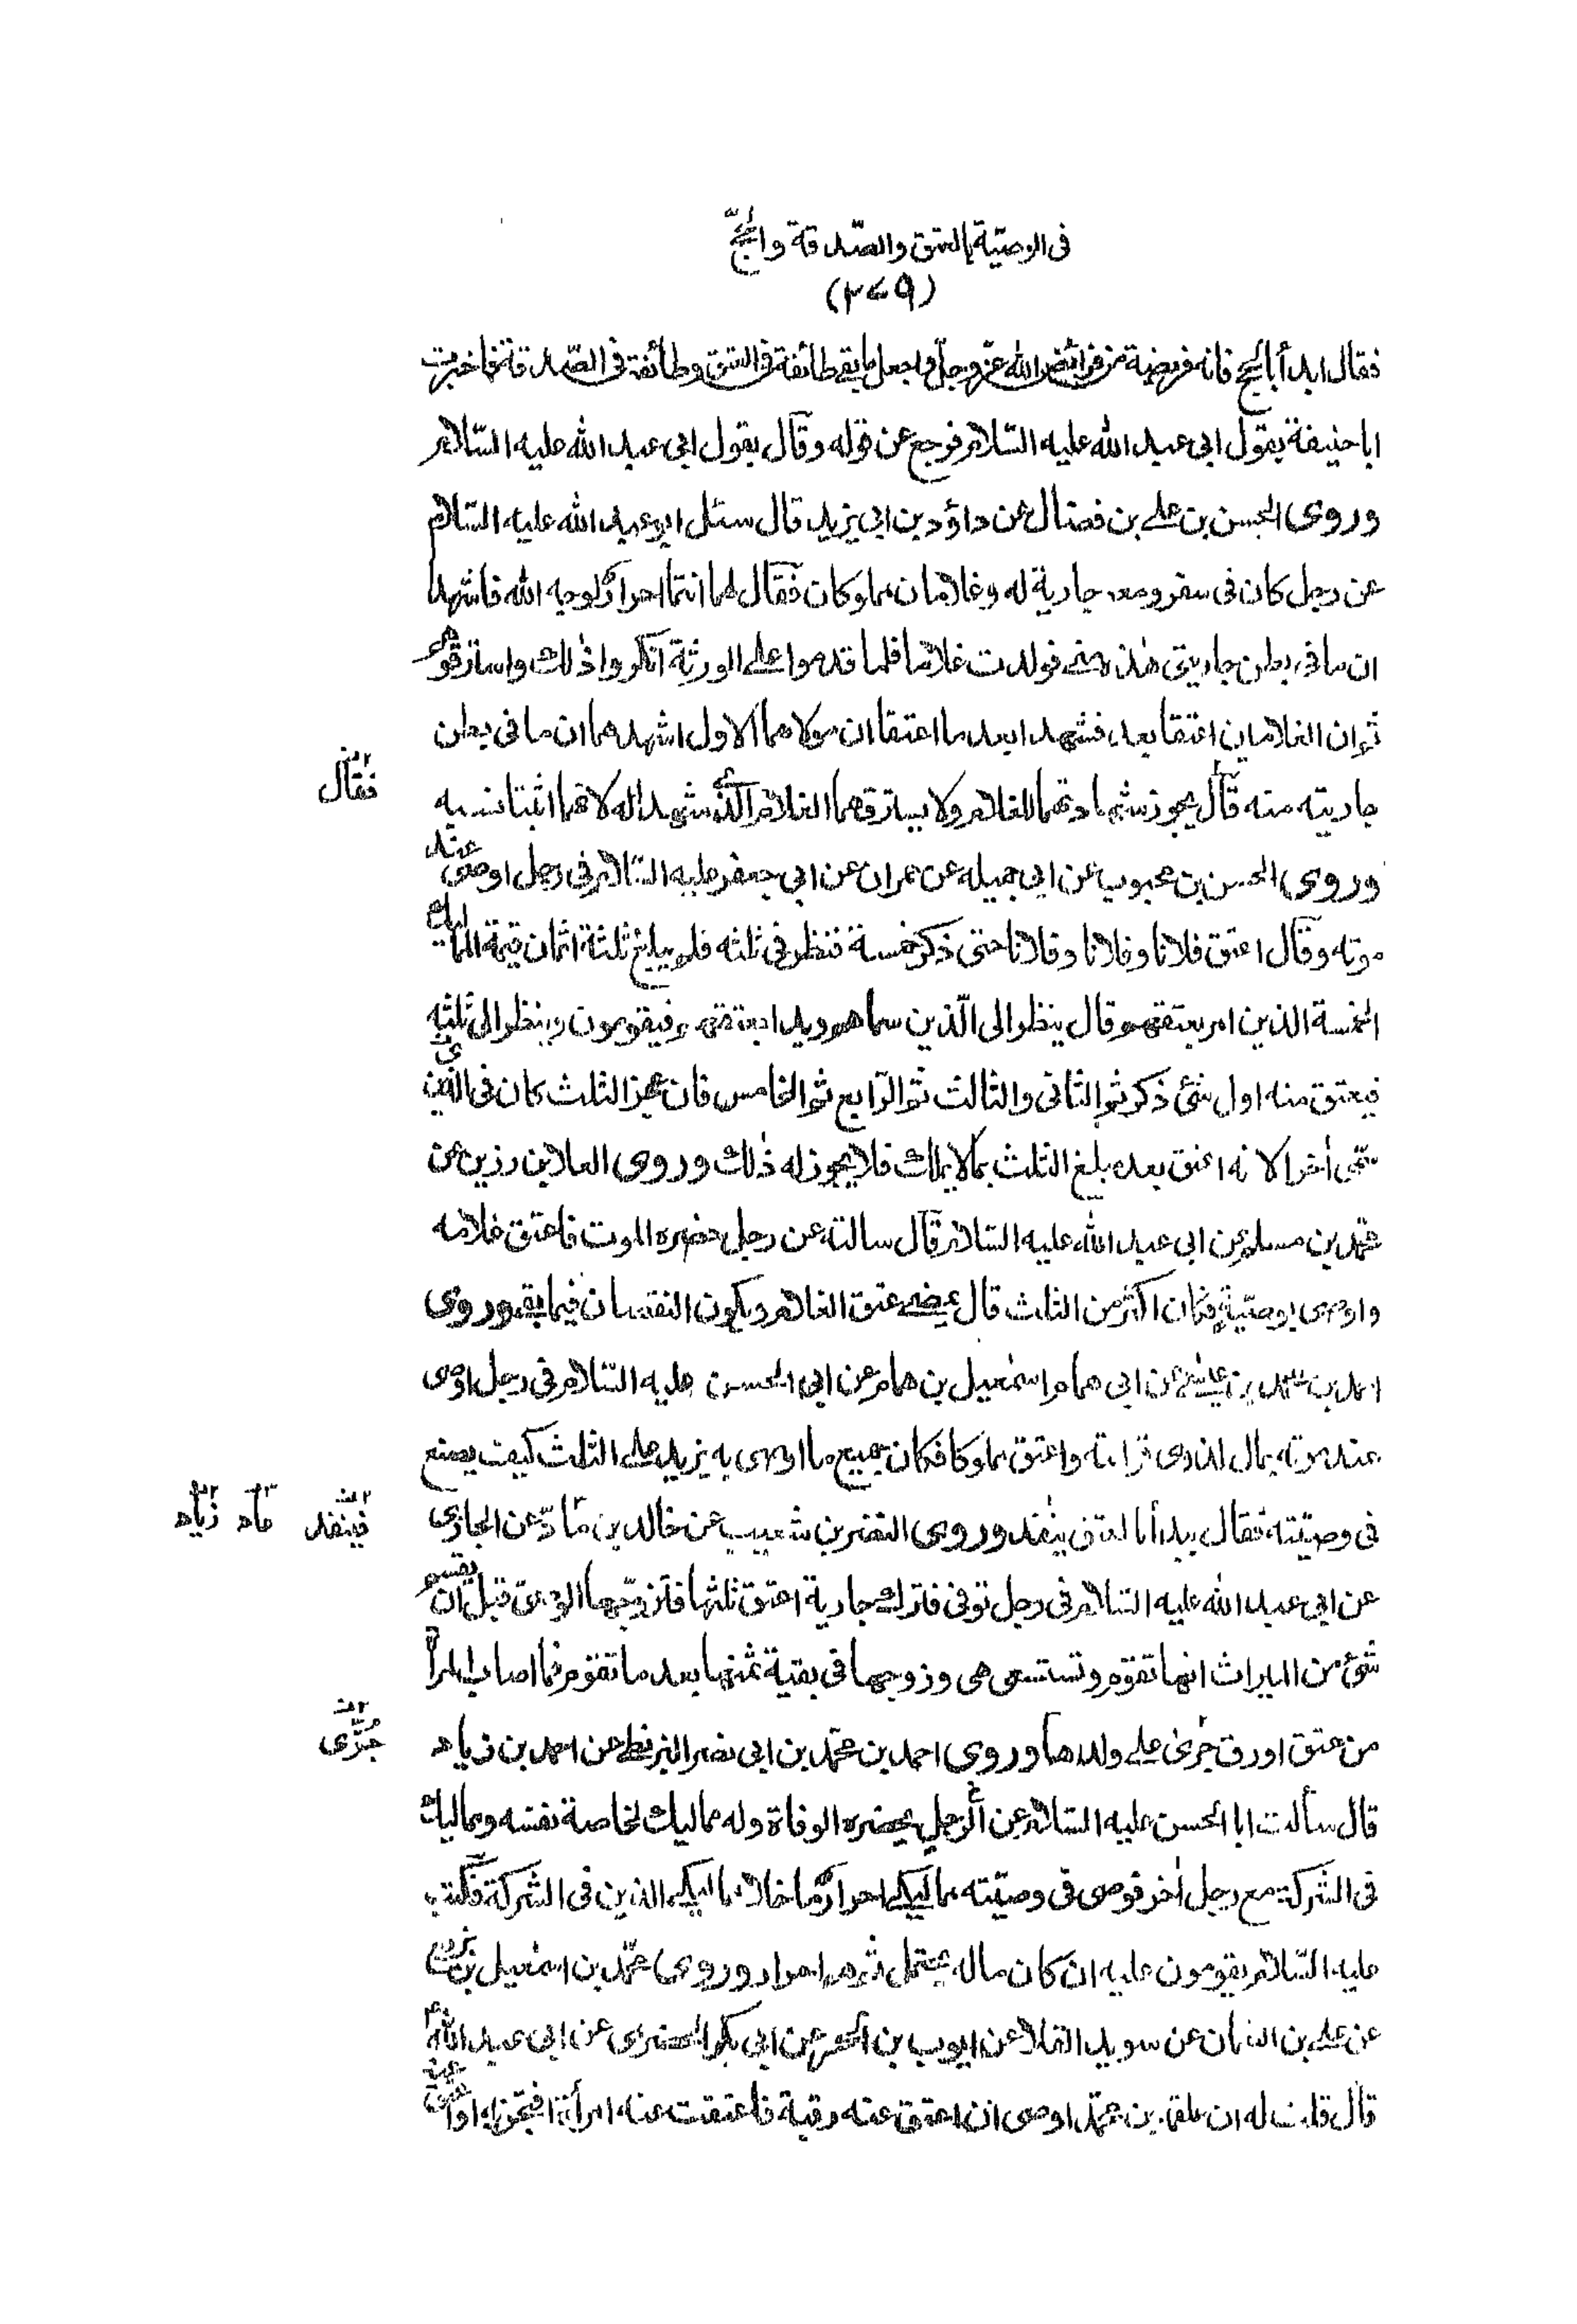 فى الوصيّة بالعتق والصّدقة والحجّ
(٣٧٩)
فقال ابدأ بالحج فانه فريضة من فرائض الله عزّ وجلّ واجعل ما بقى طائفة فى العتق وطائفة فى الصّدقة فاخبرت
ابا حنيفة بقول ابى عبد الله عليه السّلام فرجع عن قوله وقال بقول ابى عبد الله عليه السّلام
وروى الحسن بن على بن فضال عن داؤد بن ابى يزيد قال سئل ابو عبد الله عليه السّلام
عن رجل كان فى سفر ومعه جارية له وغلامان مملوكان فقال لهما انتما احرار لوجه الله فاشهدا
ان ما فى بطن جاريتى هذه منى فولدت غلاما فلما قدموا على الورثة انكروا ذلك واسترقوهم
ثم ان الغلامين اعتقا بعد فشهدا بعد ما اعتقا ان مولاهما الاول اشهدهما ان ما فى بطن
جاريته منه قال يجوز شهادتهما للغلام ولا يسترقهما الغلام الذى شهدا له لانهما اثبتا نسبه
فقال
وروى الحسن بن محبوب عن ابى جميله عن حمران عن ابى جعفر عليه السّلام فى رجل اوصى عند
موته وقال اعتق فلانا وفلانا وفلانا حتى ذكر خمسة فنظر فى ثلثه فلم يبلغ ثلثة اثمان قيمة المماليك
الخمسة الذين امر بعتقهم قال ينظر الى الّذين سماهم ويبدا بعتقهم فيقومون وينظر الى ثلثه
فيعتق منه اول شئ ذكر ثم الثانى والثالث ثم الرّابع ثم الخامس فان عجز الثلث كان فى الذى
سمّى أخرا لانه اعتق بعد مبلغ الثلث بما لا يملك فلا يجوز له ذلك وروى العلا بن رزين عن
محمّد بن مسلم عن ابى عبد الله عليه السّلام قال سالته عن رجل حضره الموت فاعتق غلامه
واوصى بوصيّة فكان اكثر من الثلث قال يمضى عتق الغلام ويكون النقصان فيما بقى وروى
احمد بن محمّد بن عيسى عن ابى همام اسمعيل بن همام عن ابى الحسن عليه السّلام فى رجل اوصى
عند موته بمال لذوى قرابته واعتق مملوكا فكان جميع ما اوصى به يزيد على الثلث كيف يصنع
فى وصيّته فقال يبدأ بالعتق ينفذ وروى النضر بن شعيب عن خالد بن مادّ عن الجازى
فينفذ ماد زياد
عن ابى عبد الله عليه السّلام فى رجل توفى فترك جارية اعتق ثلثها فتزوّجها الوصى قبل ان يقسم
شئ من الميراث انها تقوّم وتستسعى هى وزوجها فى بقية ثمنها بعد ما تقوّم فما اصاب المرأة
من عتق او رق جرى على ولدها وروى احمد بن محمّد بن ابى نصر البزنطى عن احمد بن زياد
جزّى
قال سألت ابا الحسن عليه السّلام عن الرّجل يحضره الوفاة وله مماليك لخاصة نفسه ومماليك
فى الشركة مع رجل أخر فوصى فى وصيّته مماليكى احرار ما خلا مماليكى الذين فى الشركة فكتب
عليه السّلام يقومون عليه ان كان ماله يحتمل ثم هم احرار وروى محمّد بن اسمعيل بن بزيع
عن على بن النعمان عن سويد القلا عن ايوب بن الحر عن ابى بكر الحضرمى عن ابى عبد الله ع
قال قلت له ان علقمة بن محمّد اوصى ان اعتق عنه رقبة فاعتقت عنه امرأة افتجزيه او اعتق عنه